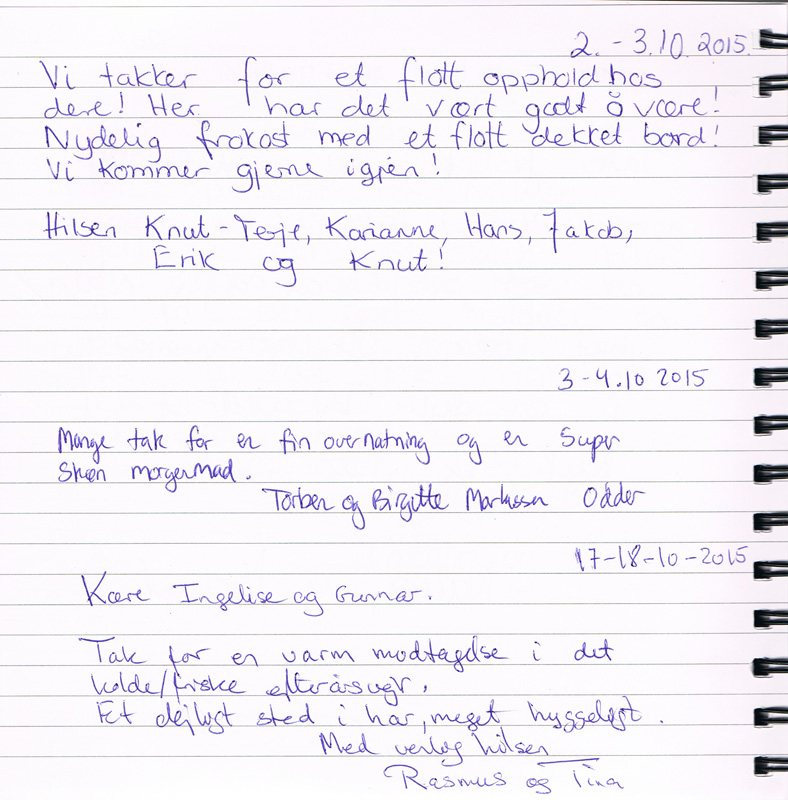 2. - 3.10. 2015.
Vi takker for et flott opphold hos
dere! Her har det vært godt å være!
Nydelig frokost med et flott dekket bord!
Vi kommer gjerne igjen!
Hilsen Knut-Terje, Karianne, Hans, Jakob,
Erik og Knut!
3-4.10 2015
Mange tak for en fin overnatning og en Super
Skøn morgenmad.
Torben og Birgitte Markussen Odder
17-18-10-2015
Kære Ingelise og Gunnar.
Tak for en varm modtagelse i det
kolde/friske efterårsvejr.
Et dejligt sted i har, meget hyggeligt.
Med venlig hilsen
Rasmus og Tina